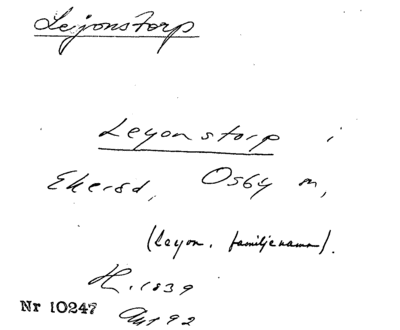 Lejonstorp
Leyonstorp i
Ekersd, Osby m,
(Leyon. familjenamn).
H. 1839
192
Nr 10247